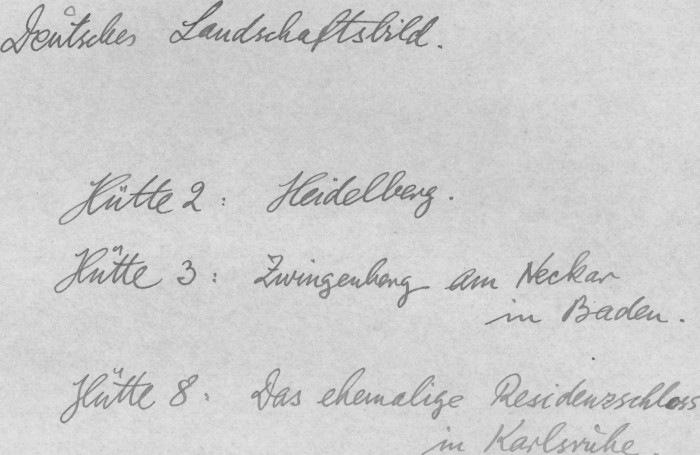 Deutsches Landschaftsbild.
Hütte 2: Heidelberg.
Hütte 3: Zwingenberg am Neckar
in Baden.
Hütte 8: Das ehemalige Residenzschloss
in Karlsruhe.